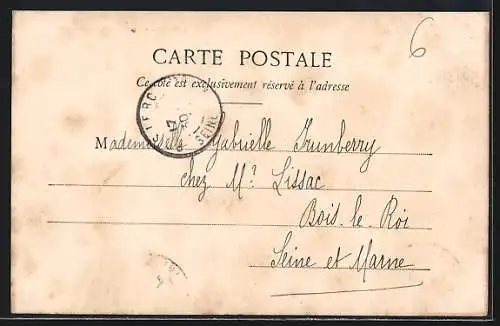 6
CARTE POSTALE
Ce côté est exclusivement réservé à l'adresse
SEINE
Mademoiselle Gabrielle
chez Mr Lissac
Bois-le-Roi
Seine et Marne